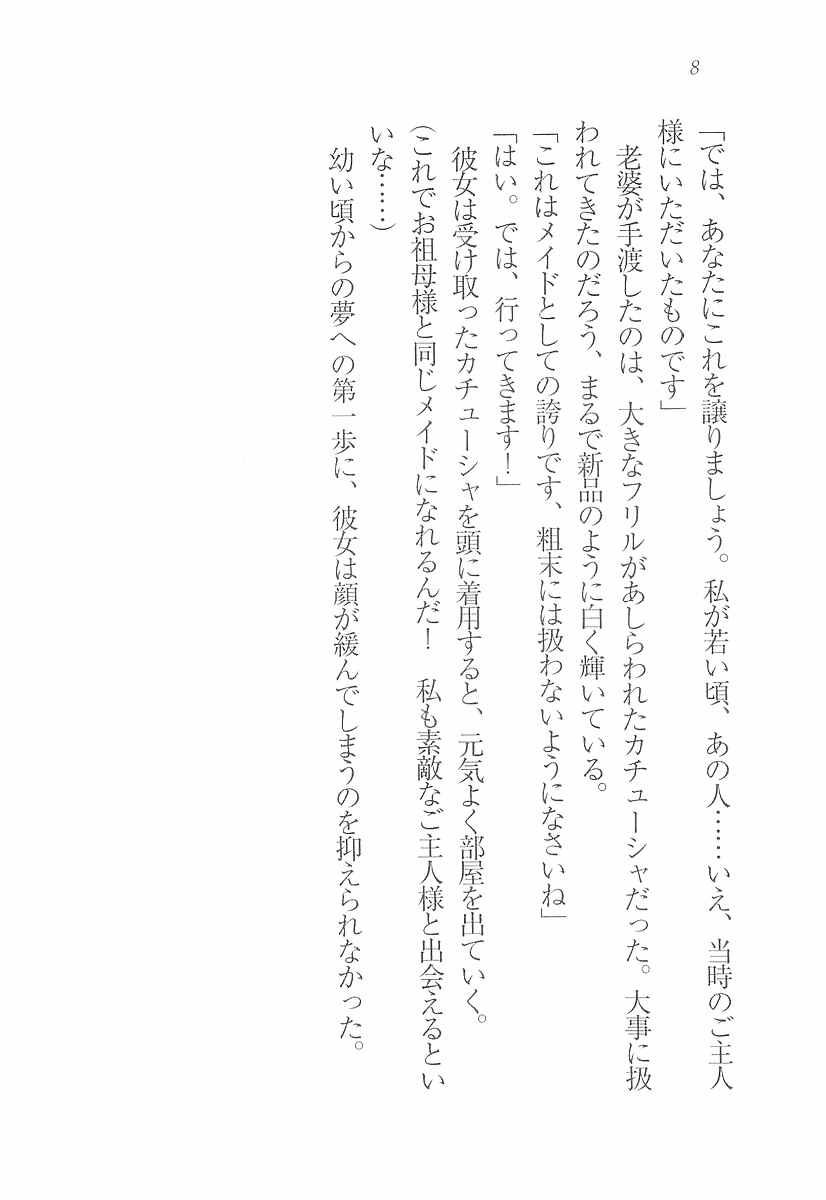 8
「では、あなたにこれを譲りましょう。私が若い頃、あの人……いえ、当時のご主人
様にいただいたものです」
　老婆が手渡したのは、大きなフリルがあしらわれたカチューシャだった。大事に扱
われてきたのだろう、まるで新品のように白く輝いている。
「これはメイドとしての誇りです、粗末には扱わないようになさいね」
「はい。では、行ってきます！」
　彼女は受け取ったカチューシャを頭に着用すると、元気よく部屋を出ていく。
（これでお祖母様と同じメイドになれるんだ！　私も素敵なご主人様と出会えるとい
いな……）
　幼い頃からの夢への第一歩に、彼女は顔が緩んでしまうのを抑えられなかった。